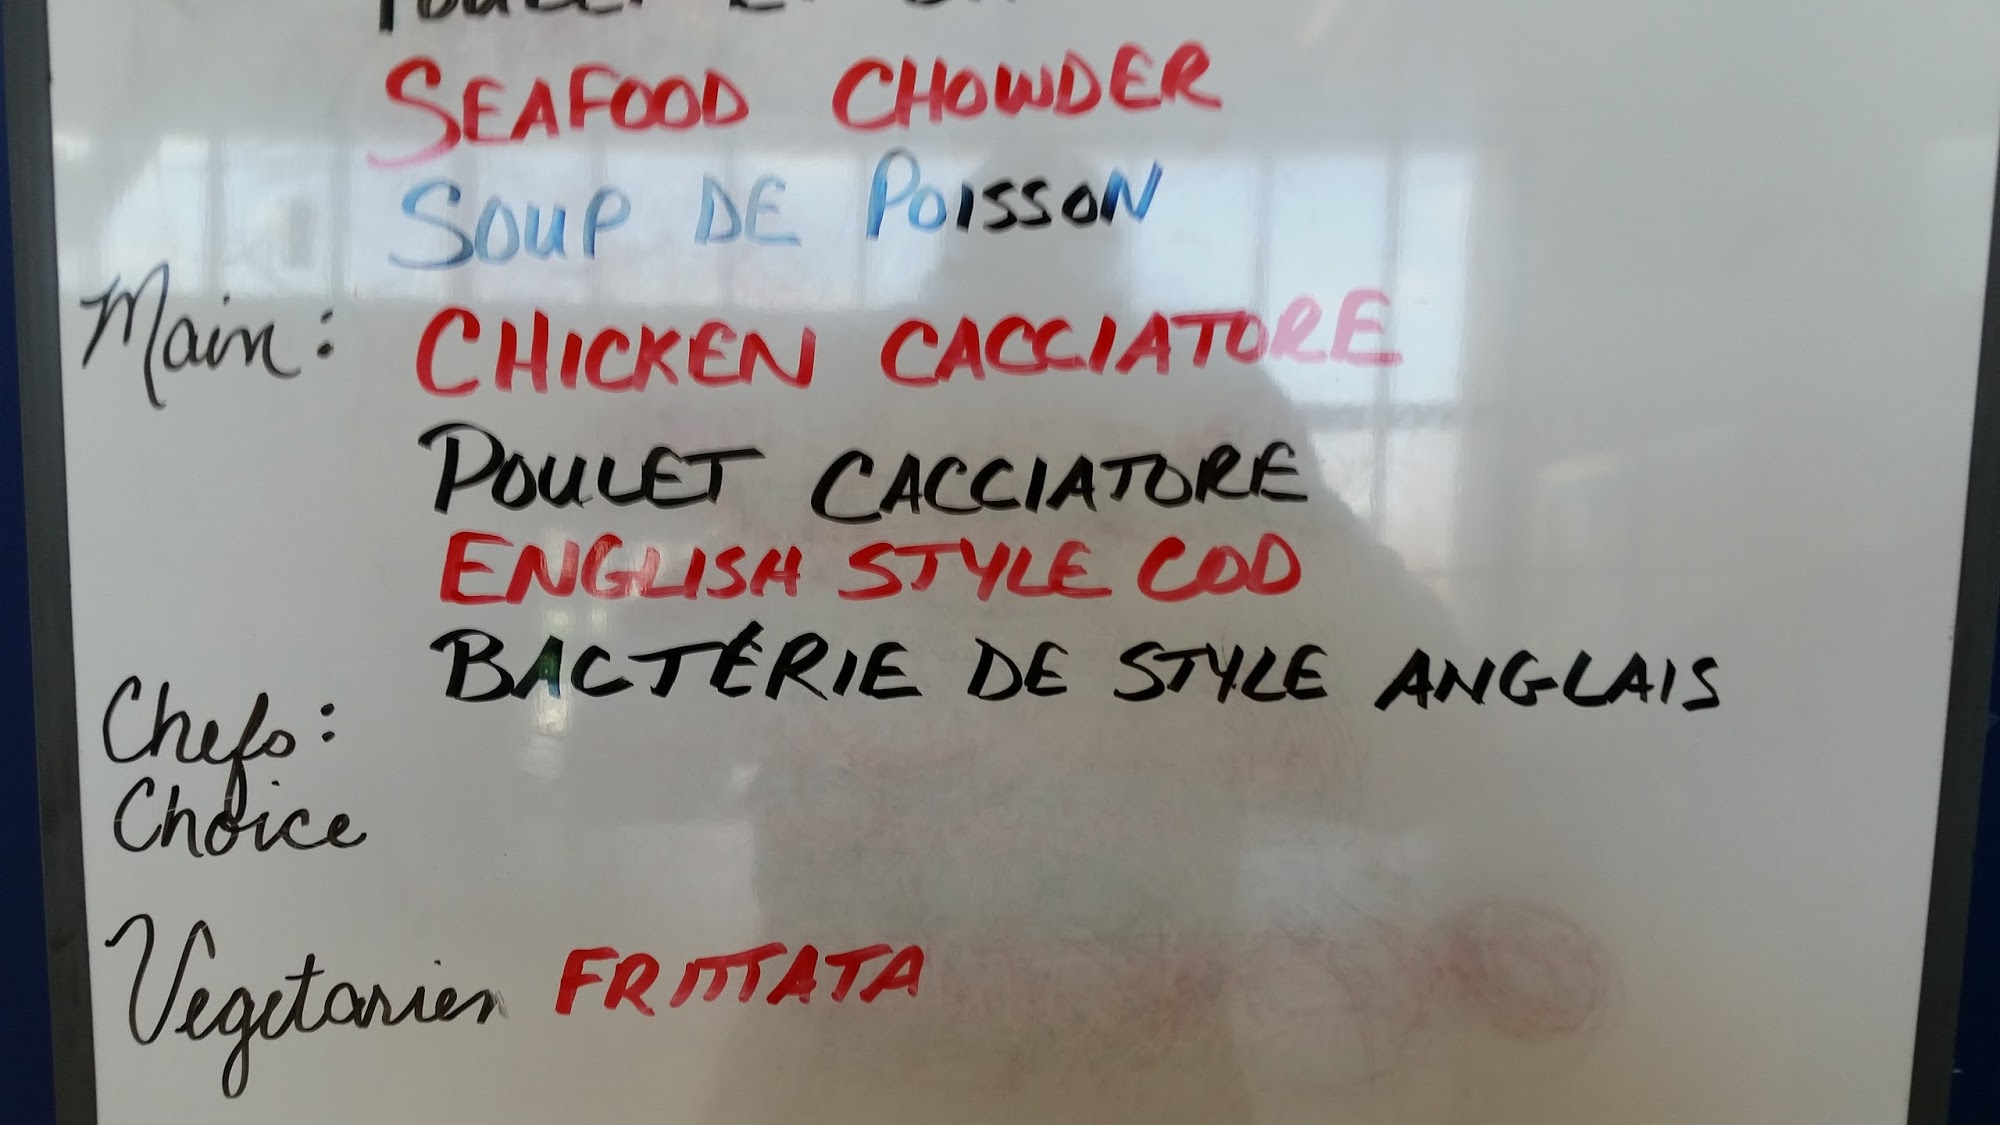 SEAFOOD CHOWDER
SOUP DE POISSON
Main: CHICKEN CACCIATORE
POULET CACCIATORE
ENGLISH STYLE COD
BACTÉRIE DE STYLE ANGLAIS
Chefs:
Choice
Vegetarien FRITTATA